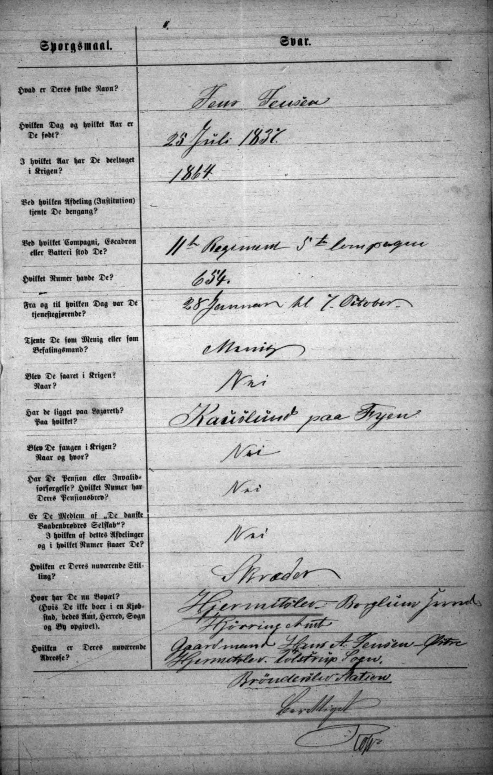 Spørgsmaal. Svar.
Hvad er Deres fulde Navn?
Jens Jensen
Hvilken Dag og hvilket Aar er
De født?
25 Juli 1837.
I hvilket Aar har De deeltaget
i Krigen?
1864.
Ved hvilken Afdeling (Institution)
tjente De dengang?
Ved hvilket Compagni, Escadron
eller Batteri stod De?
11te Regiment 5te Compagni
Hvilket Numer havde De?
654.
Fra og til hvilken Dag var De
tjenestegjørende?
28 Januar til 7. October
Tjente De som Menig eller som
Befalingsmand?
Menig
Blev De saaret i Krigen?
Naar?
Nei
Har De ligget paa Lazareth?
Paa hvilket?
Kauslund paa Fyen
Blev De fangen i Krigen?
Naar og hvor?
Nei
Har De Pension eller Invalid-
forsørgelse? Hvilket Numer har
Deres Pensionsbrev?
Nei
Er De Medlem af „De danske
Vaabenbrødres Selskab"?
I hvilken af dettes Afdelinger
og i hvilket Numer staaer De?
Nei
Hvilken er Deres nuværende Stil-
ling?
Skræder
Hvor har De nu Bopæl?
(Hvis De ikke boer i en Kjøb-
stad, bedes Amt, Herred, Sogn
og By opgivet).
Hjermitslev Børglum Herred
Hjørring Amt
Hvilken er Deres nuværende
Adresse?
Gaardmand Jens A. Jensen Østre
Hjermitslev Tolstrup Sogn.
Brønderslev Station
Berettiget